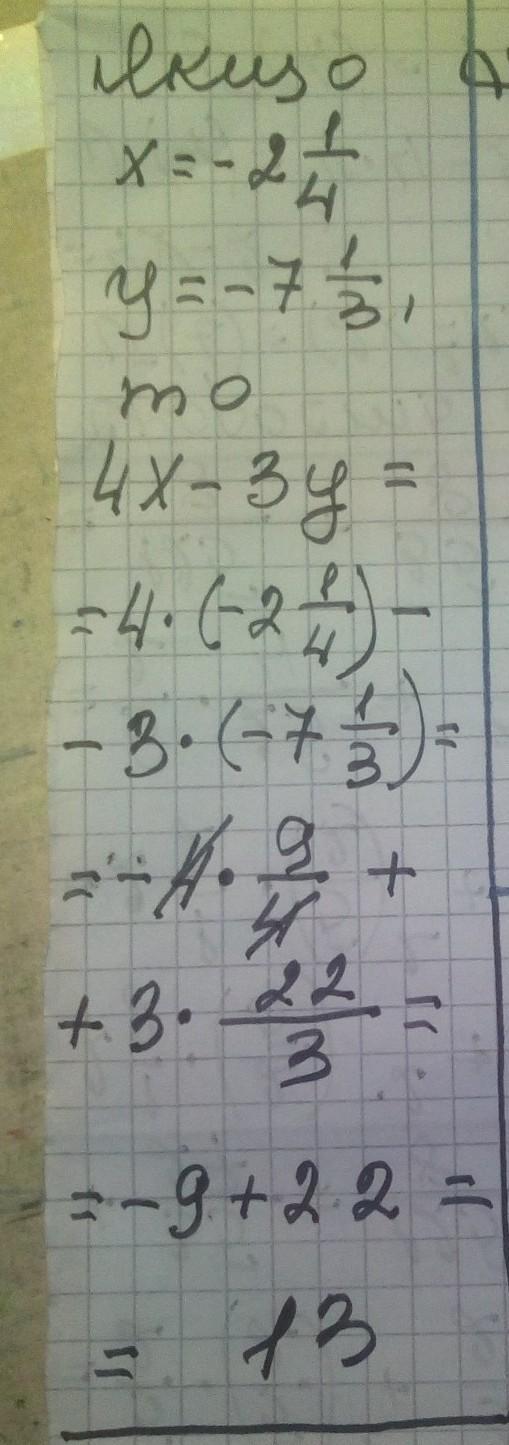 Якщо
x = - 2 1/4
y = - 7 1/3,
то
4x - 3y =
= 4 · (- 2 1/4) -
- 3 · (- 7 1/3) =
= - 4 · 9/4 +
+ 3 · 22/3 =
= - 9 + 22 =
= 13